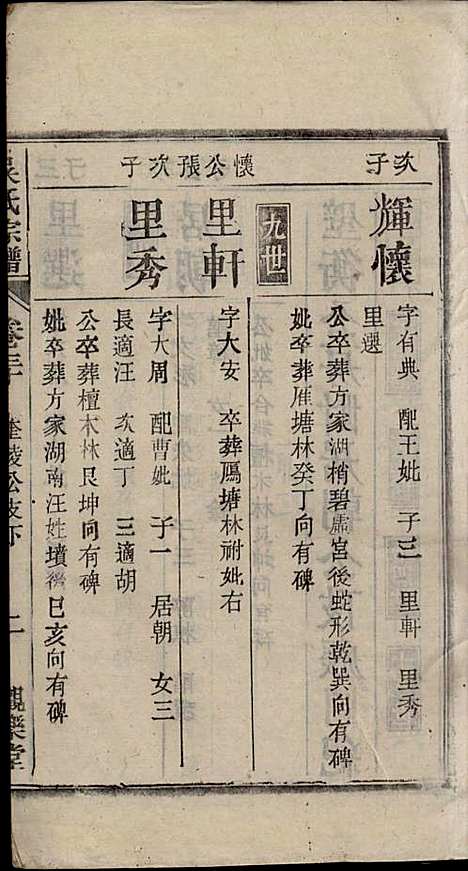 次子
輝懷
字有典 配王妣 子三 里軒 里秀
里選
公卒葬方家湖梢碧霄宮後蛇形乾巽向有碑
妣卒葬雁塘林癸丁向有碑
九世
懷公張次子
里軒
字大安 卒葬鴈塘林祔妣右
里秀
字大周 配曹妣 子一 居朝 女三
長適汪 次適丁 三適胡
公卒葬檀木林艮坤向有碑
妣卒葬方家湖南汪姓墳㑹巳亥向有碑
吳氏宗譜
公支下
二
觀樂堂